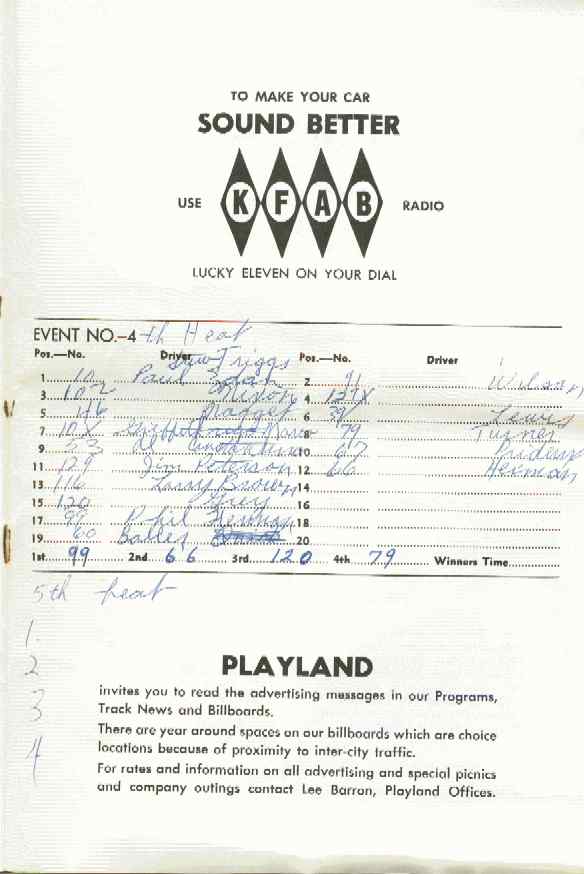 TO MAKE YOUR CAR
SOUND BETTER
USE KFAB RADIO
LUCKY ELEVEN ON YOUR DIAL
EVENT NO.-4 th Heat
Pos.—No. Driver Pos.—No. Driver
Triggs
1. 10 Paul 2. 91 Wilson
3. 102 Nixon 4. 121X
5. 46 6. 39 Lewis
7. 10X 8. 79 Turner
9. 23 10. 67
11. 129 Jim Peterson 12. 66 Herman
13. 116 Larry Brown 14
15. 120 Grey 16
17. 99 Phil 18
19. 60 20
1st 99 2nd 66 3rd 120 4th 79 Winners Time
5th heat
1.
2
3
4
PLAYLAND
invites you to read the advertising messages in our Programs,
Track News and Billboards.
There are year around spaces on our billboards which are choice
locations because of proximity to inter-city traffic.
For rates and information on all advertising and special picnics
and company outings contact Lee Barron, Playland Offices.